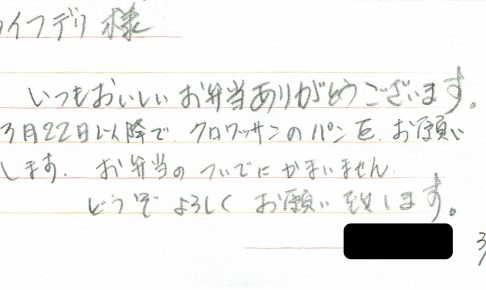 ライフデリ様
いつもおいしいお弁当ありがとうございます。
3月22日以降で、クロワッサンのパンを、お願い
します。お弁当のついでにかまいません。
どうぞよろしくお願い致します。
3/